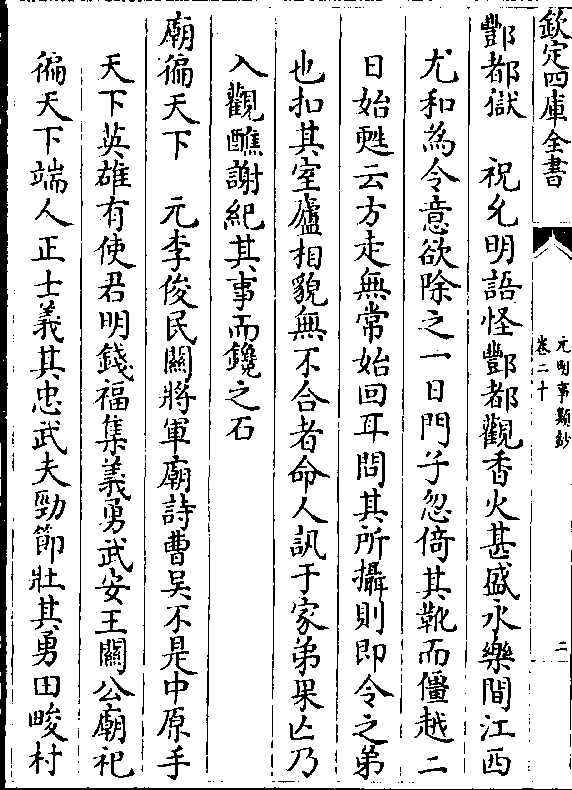 欽定四庫全書
元明事類鈔
卷二十
二
酆都獄　祝允明語怪酆都觀香火甚盛永樂間江西
尤和為令意欲除之一日門子忽倚其靴而僵越二
日始甦云方走無常始回耳問其所攝則即令之弟
也扣其室廬相貌無不合者命人訊于家弟果亾乃
入觀醮謝紀其事而鑱之石
廟徧天下　元李俊民關將軍廟詩曹吳不是中原手
天下英雄有使君明錢福集義勇武安王關公廟祀
徧天下端人正士義其忠武夫勁節壯其勇田畯村